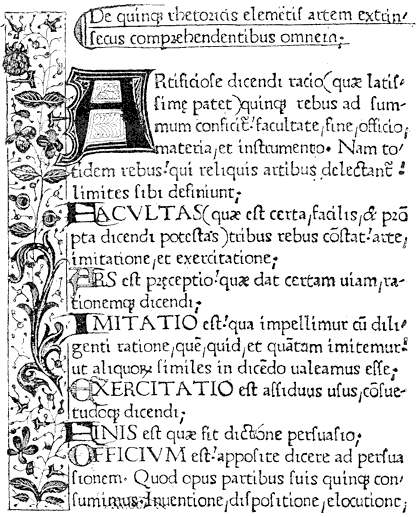 De quinqꝫ rhetoricis elemētis artem extrin/
secus comprehendentibus omnem;
ARtificiose dicendi racio (quæ latis/
sime patet) quinqꝫ rebus ad sum/
mum conficit̃. facultate, fine, officio,
materia, et instrumento. Nam to/
tidem rebus. qui reliquis artibus delectant̃.
limites sibi definiunt;
FACULTAS (quæ est certa, facilis, & p̃āo
pta dicendi potestas) tribus rebus cōstat. arte,
imitatione, et exercitatione;
ARS est præceptio. quæ dat certam uiam, ra/
tionemqꝫ dicendi;
IMITATIO est. qua impellimur cū dili/
genti ratione, quē, quid, et quātum imitemur.
ut aliquoꝝ similes in dicēdo ualeamus esse;
EXERCITATIO est assiduus usus, cōsue/
tudoqꝫ dicendi;
FINIS est quæ fit dictione persuasio;
OFFICIVM est. apposite dicere ad persua
sionem. Quod opus partibus suis quinqꝫ con/
sumimus. Inuentione, dispositione, elocutione,